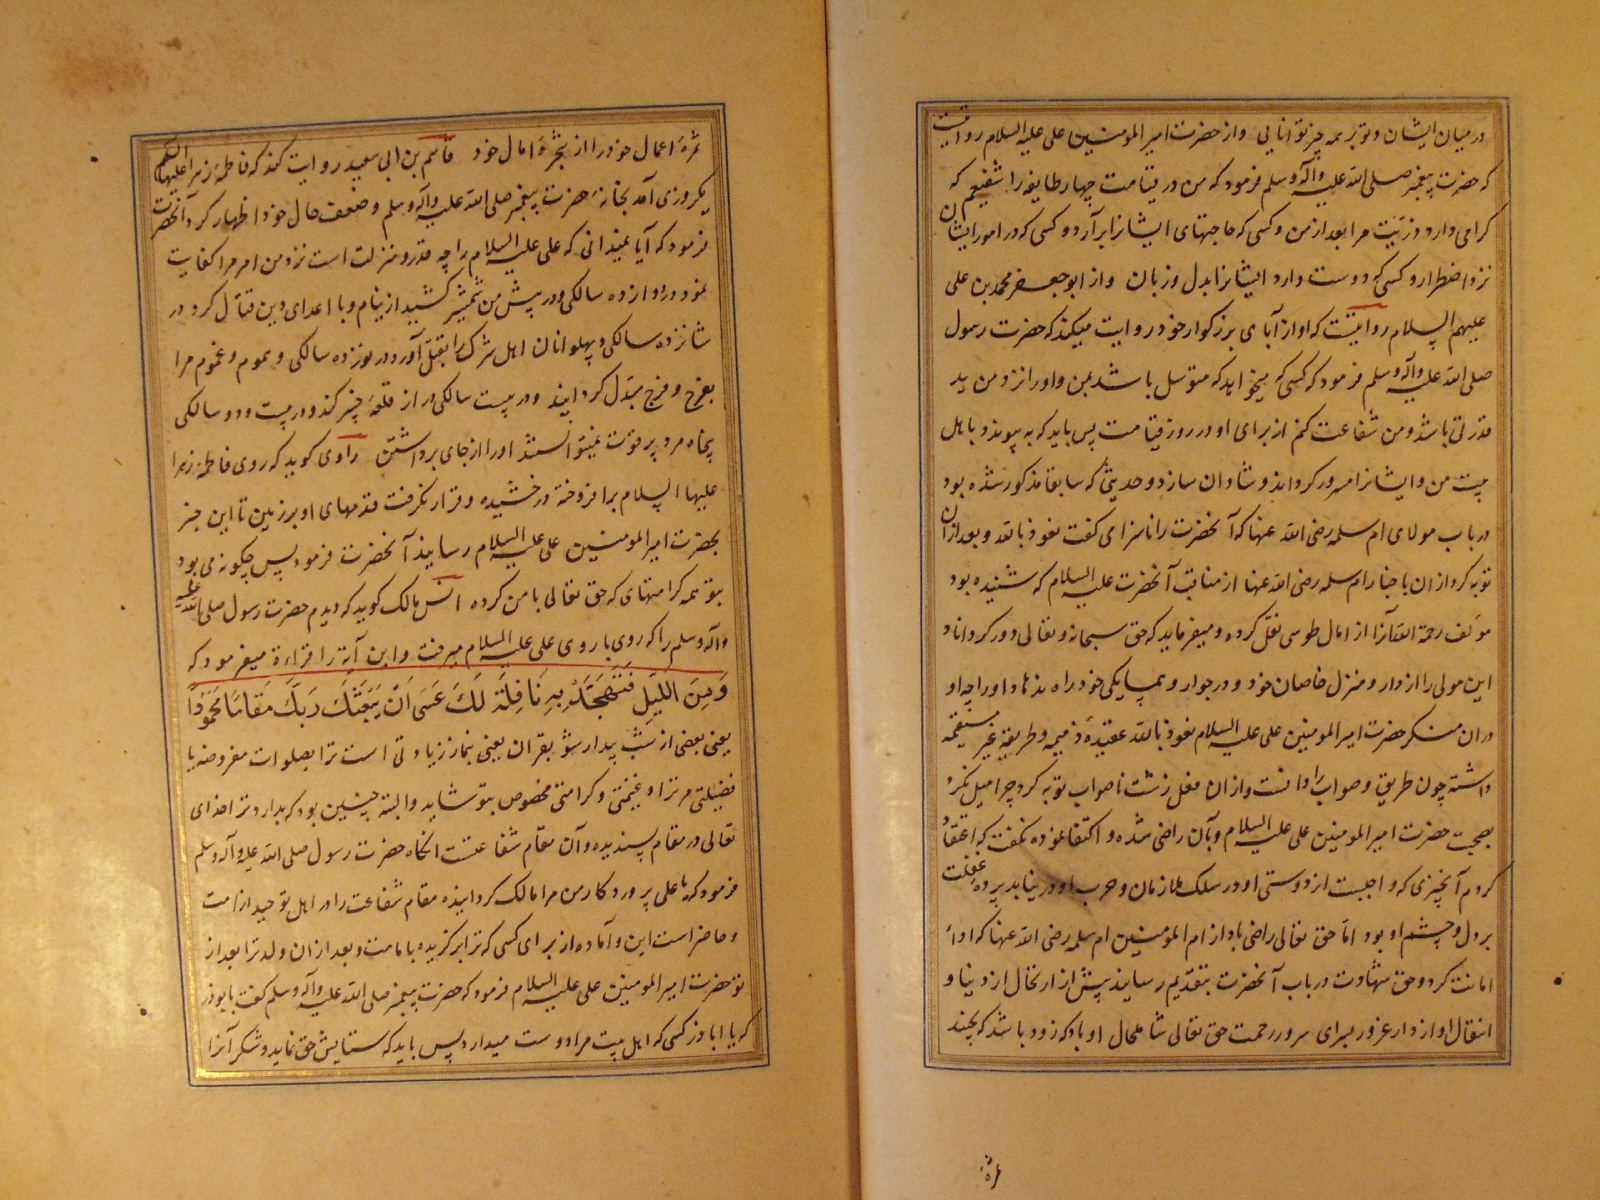 در میان ایشان و تو بر همه چیز توانایی و از حضرت امیر المومنین علی علیه السلام روایت
که حضرت پیغمبر صلی الله علیه وآله وسلم فرمود که من در قیامت چهار طایفه را شفیعم که
کرامی دارد ذریت مرا بعد از من و کسی که حاجتهای ایشانرا برآرد و کسی که در امور ایشان
نزد اضطرار و کسی که دوست دارد ایشانرا بدل و زبان و از ابو جعفر محمد بن علی
علیهم السلام روایتست که او از آبای بزرکوار خود روایت میکند که حضرت رسول
صلی الله علیه وآله وسلم فرمود که کسی که میخواهد که متوسل باشد بمن و او را نزد من ید
قدرتی باشد و من شفاعت کنم از برای او در روز قیامت پس باید که به پیوندد با اهل
بیت من و ایشانرا مسرور کرداند و شادان سازد و حدیثی که سابقا مذکور شده بود
در باب مولای ام سلمه رضی الله عنها که آنحضرت را ناسزای کفت نعوذ بالله و بعد از ان
توبه کرد از ان باخبار ام سلمه رضی الله عنها از مناقب آنحضرت علیه السلام که شنیده بود
مولف رحمة الله آنرا از امال طوسی نقل کرده و میفرماید که حق سبحانه و تعالی دور کرداناد
این مولی را از دار و منزل خاصان خود و در جوار و همسایکی خود راه ندهاد او را چه او
در ان منکر حضرت امیر المومنین علی علیه السلام نعوذ بالله عقیدهٔ ذمیمه و طریقهٔ غیر مستقیمه
داشته چون طریق و صواب را دانست و از ان فعل زشت ناصواب توبه کرد چرا میل نکرد
بصحبت حضرت امیر المومنین علی علیه السلام و بآن راضی شده و اکتفا نموده بکفت که اعتقاد
کردم آنچیزی که واجبست از دوستی او در سلک ملازمان و حزب او در نیابد پرده غفلت
بر دل و چشم او بود اما حق تعالی راضی باد از ام المومنین ام سلمه رضی الله عنها که اداء
امانت کرد و حق شهادت در باب آنحضرت بتقدیم رسانید پیش از ارتحال از دنیا و
انتقال او از دار غرور بسرای سرور رحمت حق تعالی شامل حال او باد که زود باشد که بچیند
ثمرهٔ
ثمرهٔ اعمال خود را از شجرهٔ امال خود قاسم بن ابی سعید روایت کند که فاطمهٔ زهرا علیها السلام
یکروزی آمد بخانهٔ حضرت پیغمبر صلی الله علیه وآله وسلم و ضعف حال خود اظهار کرد آنحضرت
فرمود که آیا نمیدانی که علی علیه السلام را چه قدر و منزلت است نزد من امر مرا کفایت
نمود در دوازده سالکی و در پیش من شمشیر کشید از نیام و با اعدای دین قتال کرد در
شانزده سالکی و پهلوانان اهل شرک را بقتل آورد در نوزده سالکی و هموم و غموم مرا
بفرح و فرج مبدل کردانید و در بیست سالکی در از قلعهٔ خیبر کند و در بیست و دو سالکی
پنجاه مرد پر قوت نمیتوانستند او را از جای برداشتن راوی کوید که روی فاطمهٔ زهرا
علیها السلام برافروخته درخشیده و قرار نکرفت قدمهای او بر زمین تا این خبر
بحضرت امیر المومنین علی علیه السلام رسانید آنحضرت فرمود پس چکونه می بود
بتو همه کرامتهای که حق تعالی بامن کرده انس مالک کوید که دیدم حضرت رسول صلی الله علیه
وآله وسلم را که روی با روی علی علیه السلام میرفت و این آیة را قراءة میفرمود که
وَمِنَ اللَّيْلِ فَتَهَجَّدْ بِهِ نَافِلَةً لَكَ عَسَى أَنْ يَبْعَثَكَ رَبُّكَ مَقَامًا مَحْمُودًا
یعنی بعضی از شب بیدار شو بقران یعنی بنماز زیادتی است ترا بصلوات مفروضه یا
فضیلتی مر ترا و غنیمتی و کرامتی مخصوص بتو شاید والبته چنین بود که بدارد ترا خدای
تعالی در مقام پسندیده و آن مقام شفاعتست انکاه حضرت رسول صلی الله علیه وآله وسلم
فرمود که یا علی پروردکار من مرا مالک کردانیده مقام شفاعت را در اهل توحید از امت
و حاضر است این و آماده از برای کسی که ترا برکزیده بامامت و بعد از ان ولد ترا بعد از
تو حضرت امیر المومنین علی علیه السلام فرمود که حضرت پیغمبر صلی الله علیه وآله وسلم کفت بابوذر
که یا اباذر کسی که اهل بیت مرا دوست میدارد پس باید که ستایش حق نماید و شکر آنرا